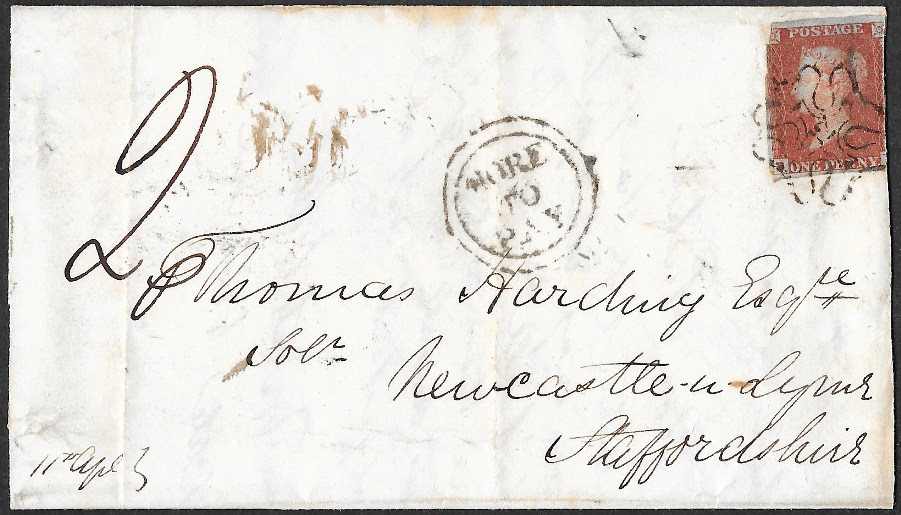 POSTAGE
ONE PENNY
2
MORE
TO
PAY
Thomas Harding Esqre
Solr
Newcastle-u-Lyme
Staffordshire
11th Apl